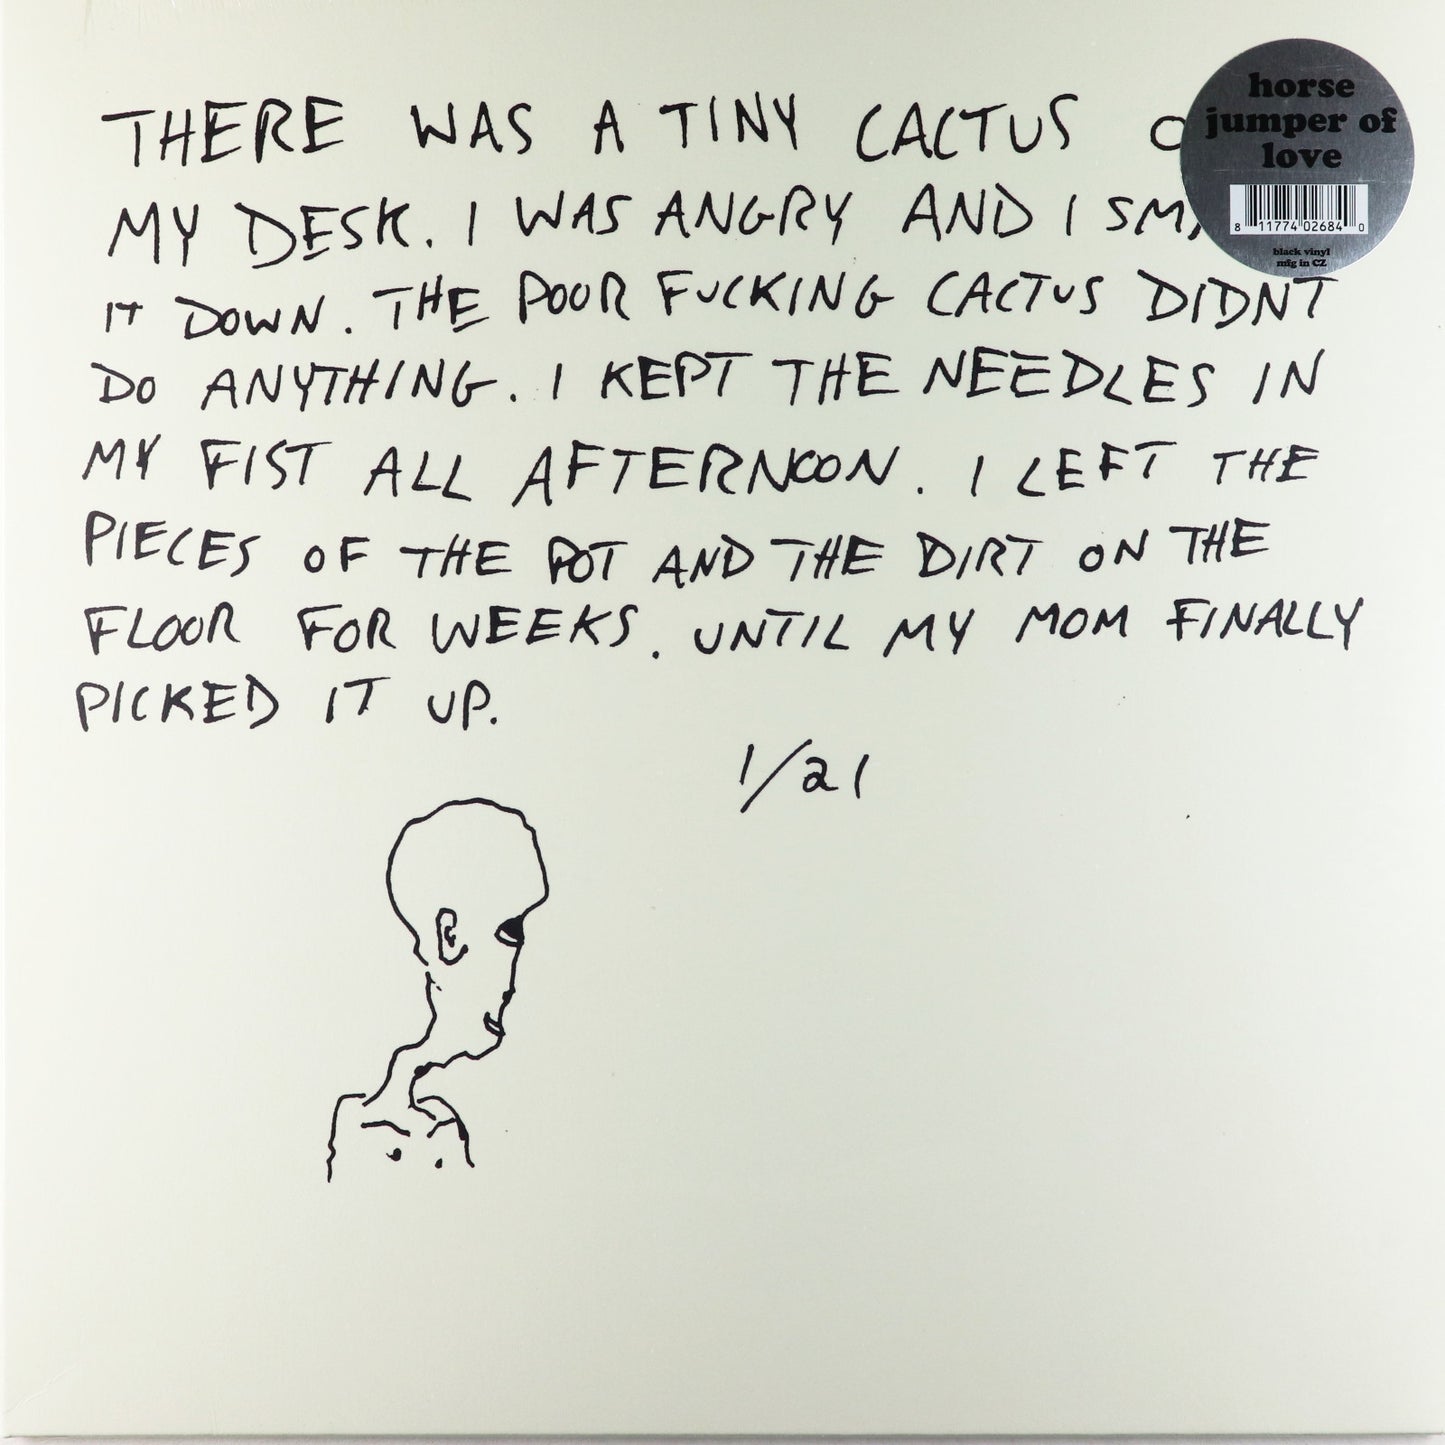 THERE WAS A TINY CACTUS
MY DESK. I WAS ANGRY AND I
IT DOWN. THE POOR FUCKING CACTUS DIDNT
DO ANYTHING. I KEPT THE NEEDLES IN
MY FIST ALL AFTERNOON. I LEFT THE
PIECES OF THE POT AND THE DIRT ON THE
FLOOR FOR WEEKS. UNTIL MY MOM FINALLY
PICKED IT UP.
1/21
horse
jumper of
love
8 11774 02684 0
black vinyl
mfg in CZ